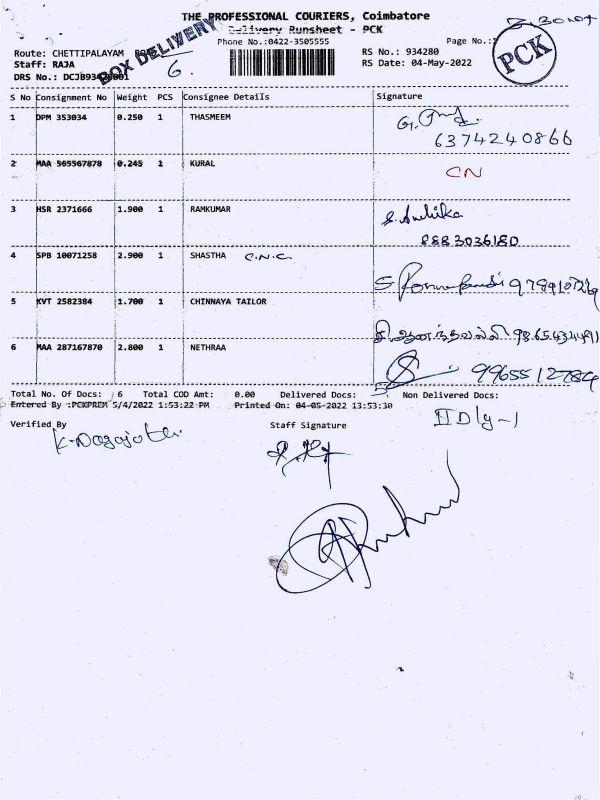 THE PROFESSIONAL COURIERS, Coimbatore
Delivery Runsheet - PCK
Phone No.:0422-3505555
Page No.:
PCK
BOX DELIVERY
6.
Route: CHETTIPALAYAM
RS No.: 934280
Staff: RAJA
RS Date: 04-May-2022
DRS No.:
S No Consignment No Weight PCS Consignee Details Signature
1 DPM 353034 0.250 1 THASMEEM
6374240866
2 MAA 565567878 0.245 1 KURAL CN
3 HSR 2371666 1.900 1 RAMKUMAR
8883036180
4 SPB 10071258 2.900 1 SHASTHA C.N.C.
5 KVT 2582384 1.700 1 CHINNAYA TAILOR
6 MAA 287167870 2.800 1 NETHRAA
9965512784
Total No. Of Docs: 6 Total COD Amt: 0.00 Delivered Docs: 5 Non Delivered Docs:
Entered By :PCKPREM 5/4/2022 1:53:22 PM Printed On: 04-05-2022 13:53:30
Verified By Staff Signature